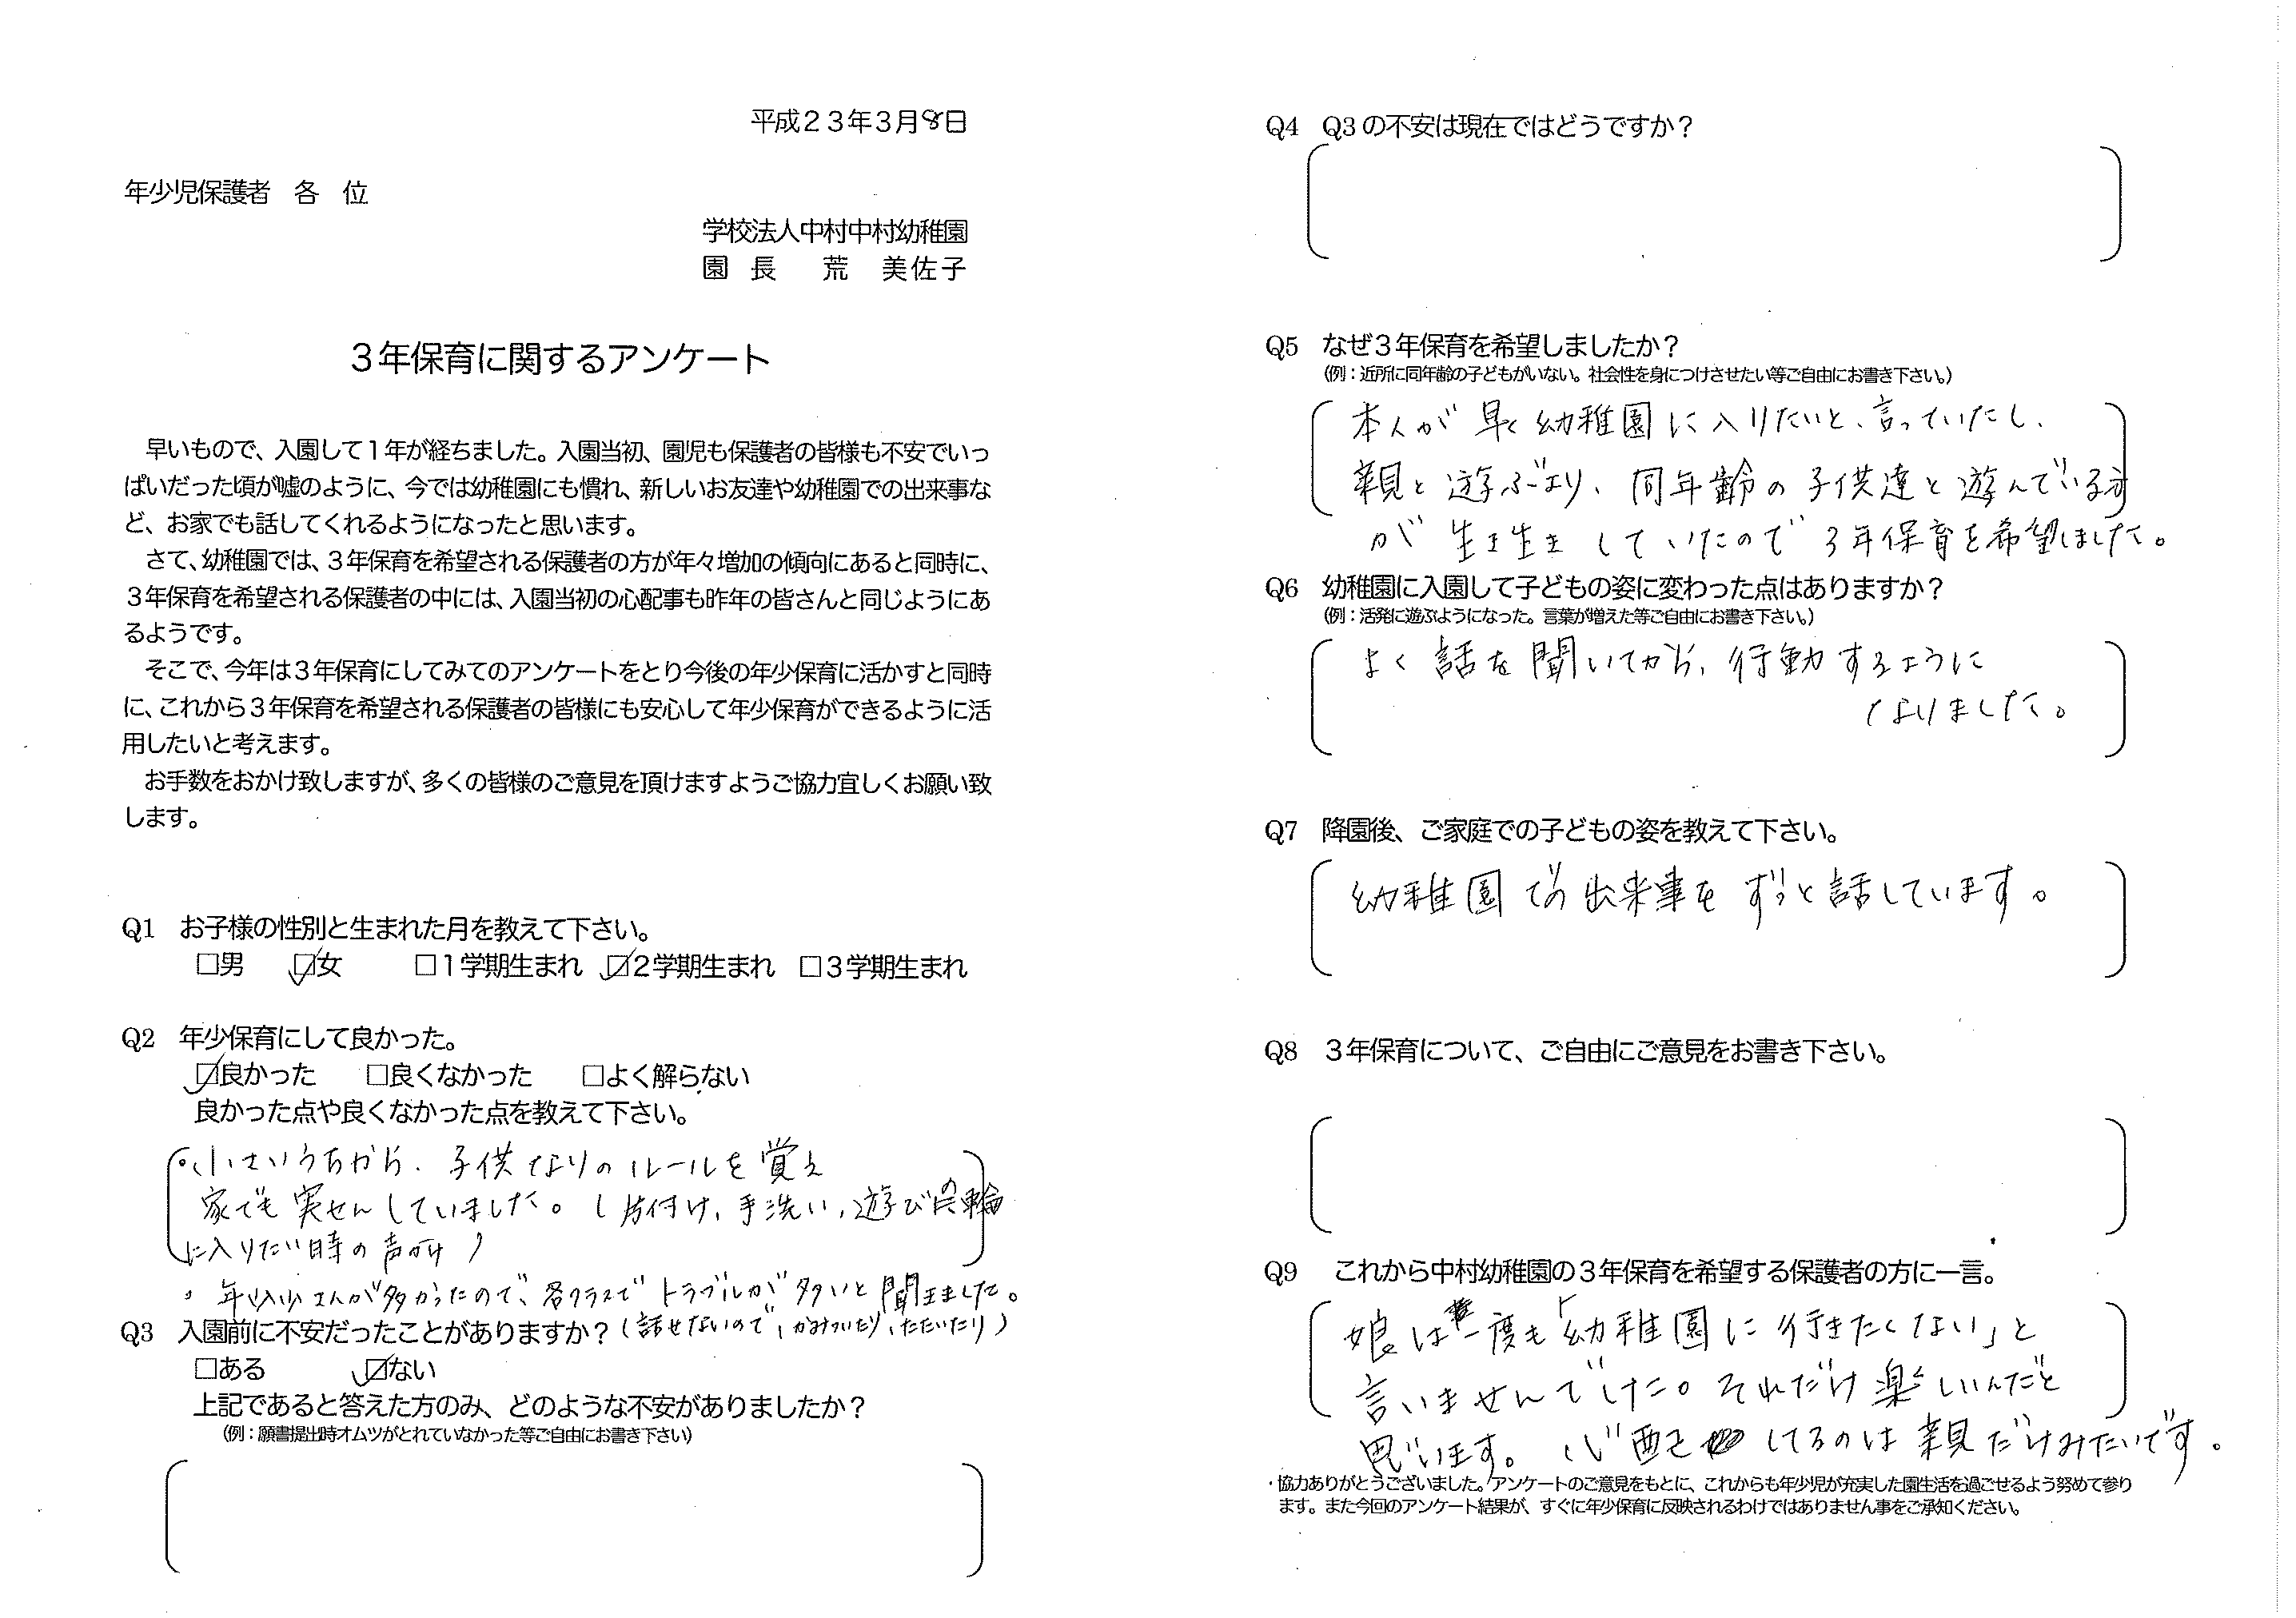 平成23年3月8日
年少児保護者 各 位
学校法人中村中村幼稚園
園 長 荒 美佐子
3年保育に関するアンケート
早いもので、入園して1年が経ちました。入園当初、園児も保護者の皆様も不安でいっ
ぱいだった頃が嘘のように、今では幼稚園にも慣れ、新しいお友達や幼稚園での出来事な
ど、お家でも話してくれるようになったと思います。
さて、幼稚園では、3年保育を希望される保護者の方が年々増加の傾向にあると同時に、
3年保育を希望される保護者の中には、入園当初の心配事も昨年の皆さんと同じようにあ
るようです。
そこで、今年は3年保育にしてみてのアンケートをとり今後の年少保育に活かすと同時
に、これから3年保育を希望される保護者の皆様にも安心して年少保育ができるように活
用したいと考えます。
お手数をおかけ致しますが、多くの皆様のご意見を頂けますようご協力宜しくお願い致
します。
Q1 お子様の性別と生まれた月を教えて下さい。
□男 ☑女 □1学期生まれ ☑2学期生まれ □3学期生まれ
Q2 年少保育にして良かった。
☑良かった □良くなかった □よく解らない
良かった点や良くなかった点を教えて下さい。
・小さいうちから、子供なりのルールを覚え
家でも実せんしていました。(片付け、手洗い、遊びの輪
に入りたい時の声かけ)
・年少さんが多かったので、各クラスでトラブルが多いと聞きました。
(話せないので、かみついたり、たたいたり)
Q3 入園前に不安だったことがありますか?
□ある ☑ない
上記であると答えた方のみ、どのような不安がありましたか?
(例:願書提出時オムツがとれていなかった等ご自由にお書き下さい)
Q4 Q3の不安は現在ではどうですか?
Q5 なぜ3年保育を希望しましたか?
(例:近所に同年齢の子どもがいない。社会性を身につけさせたい等ご自由にお書き下さい。)
本人が早く幼稚園に入りたいと、言っていたし、
親と遊ぶより、同年齢の子供達と遊んでいる方
が生き生きしていたので3年保育を希望しました。
Q6 幼稚園に入園して子どもの姿に変わった点はありますか?
(例:活発に遊ぶようになった。言葉が増えた等ご自由にお書き下さい。)
よく話を聞いてから、行動するように
なりました。
Q7 降園後、ご家庭での子どもの姿を教えて下さい。
幼稚園での出来事をずっと話しています。
Q8 3年保育について、ご自由にご意見をお書き下さい。
Q9 これから中村幼稚園の3年保育を希望する保護者の方に一言。
娘は一度も「幼稚園に行きたくない」と
言いませんでした。それだけ楽しいんだと
思います。心配をしてるのは親だけみたいです。
・協力ありがとうございました。アンケートのご意見をもとに、これからも年少児が充実した園生活を過ごせるよう努めて参り
ます。また今回のアンケート結果が、すぐに年少保育に反映されるわけではありません事をご承知ください。